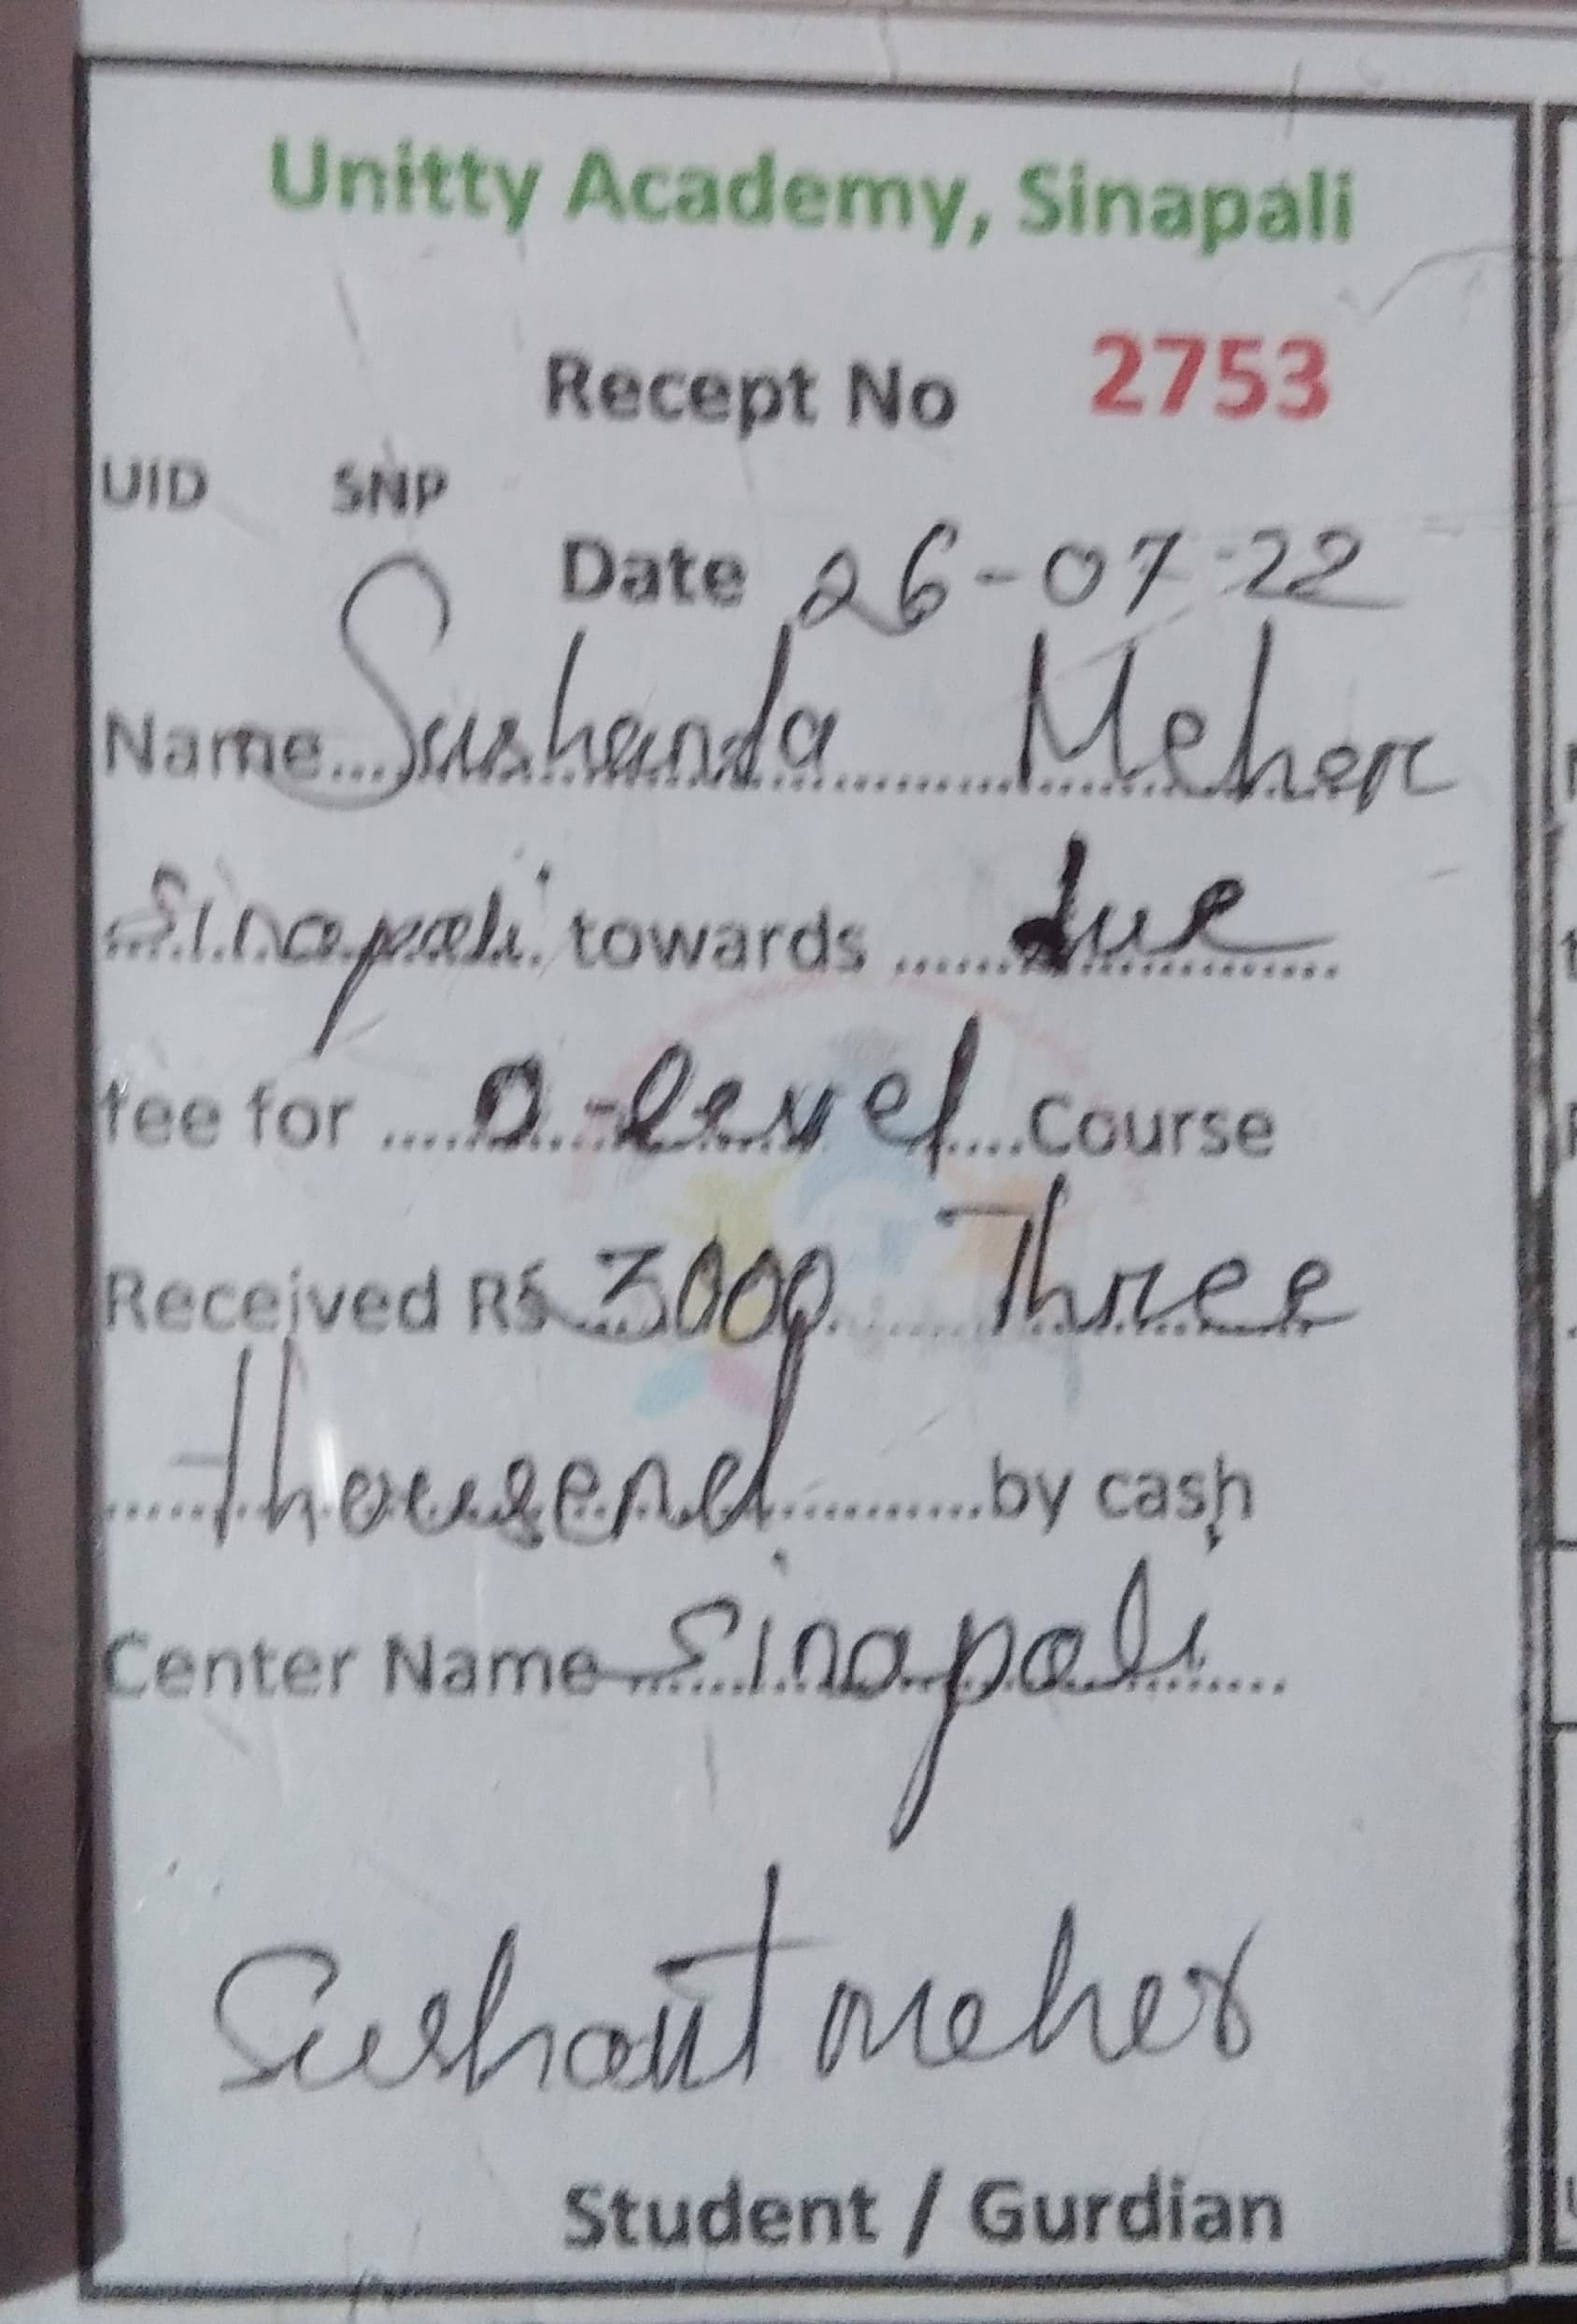 Unitty Academy, Sinapali
Recept No 2753
UID SNP
Date 26-07-22
Name...Sushanda Meher
Sinapali towards ......due
fee for ....O-level....Course
Received Rs 3000 Three
thousend............by cash
Center Name Sinapali
Sushant meher
Student / Gurdian